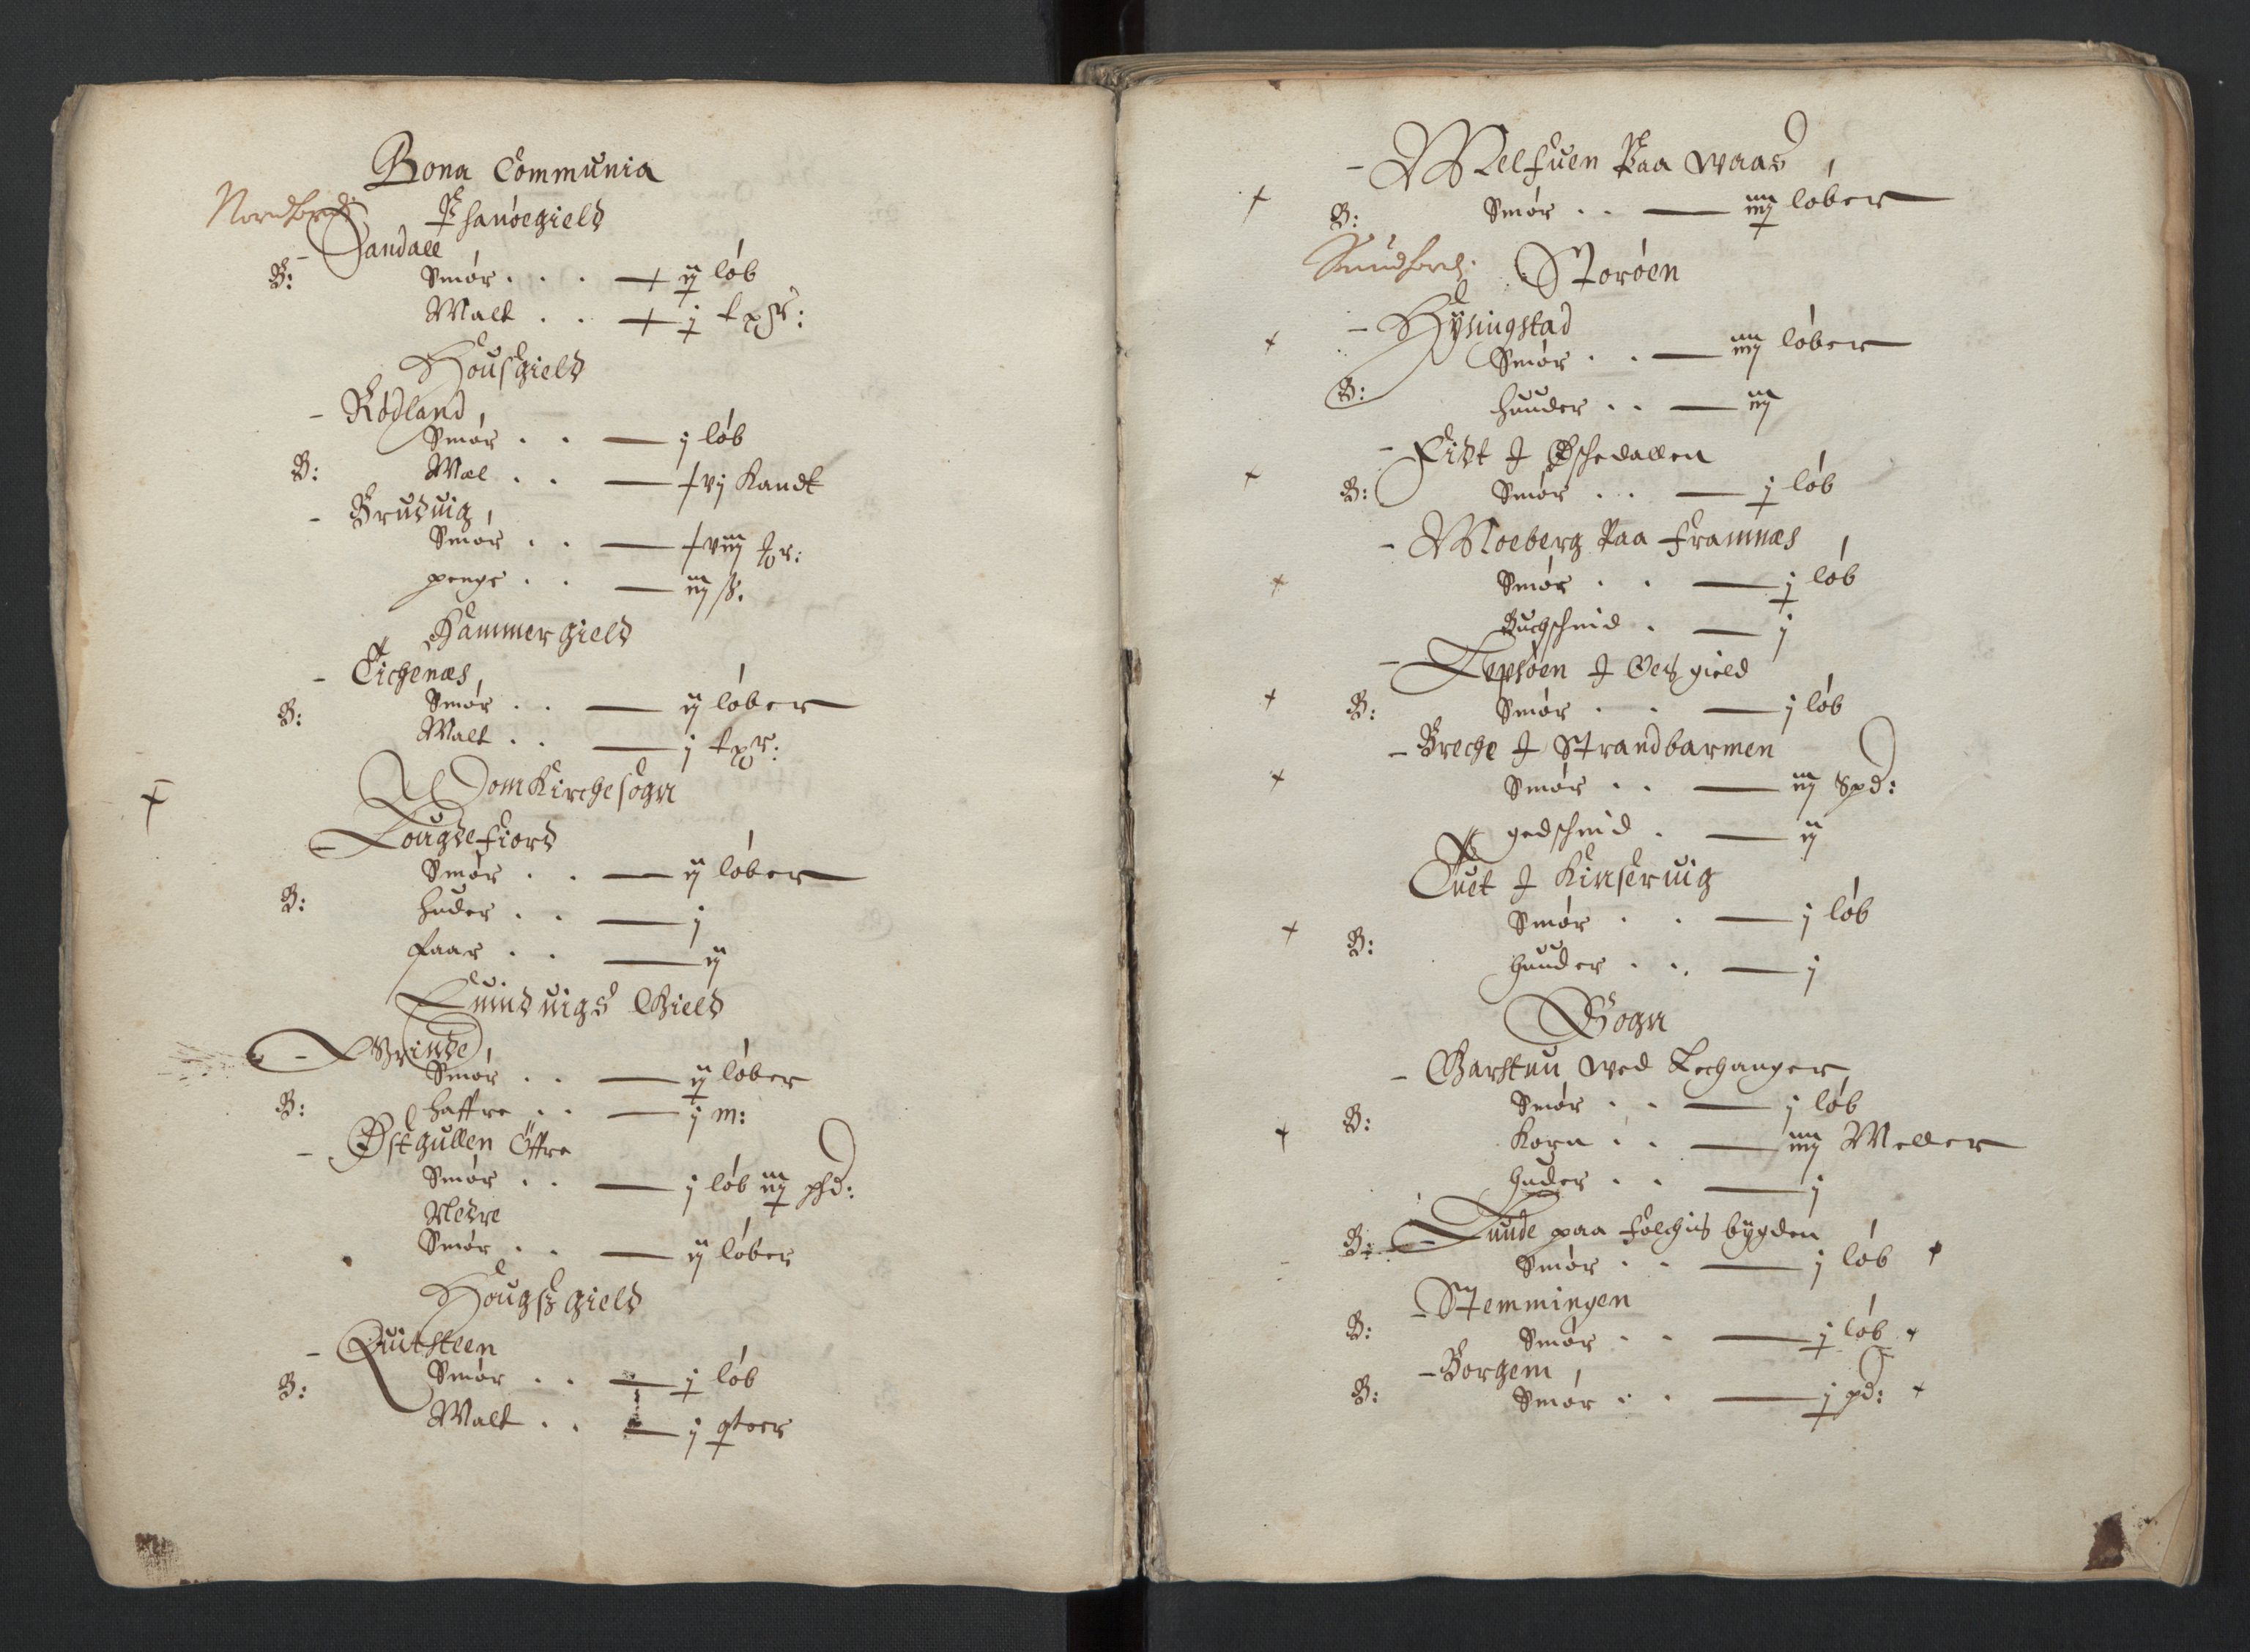 Bona Communia
Nordhord:
Phanöegield
- Sandall
B: Smør . . . — ij løb
Malt . . — j tpsr:
Housgield
- Rødland,
Smør . . — j løb
B: Mel . . — vj Kandt
- Bruduig,
Smør . . — viij pr:
penge . . — iij ß.
Hammer gield
- Eichenæs,
B: Smør . . — ij løber
Malt . . — j tpr:
DomKirche sogn
- Lougdefiord
Smør . . — ij løber
B: huder . . — j
faar . . — ij
Euinduigs Gield
- Brinde,
Smør . . — ij løber
B: haffre . . — j m:
- Østgullen Öffre
Smør . . — j løb iij phd:
Nedre
Smør . . — ij løber
Hougsz gield
- Quitsteen
B: Smør . . — j løb
Malt . . — j qteer
- Melfuen Paa Waas,
B: Smør . . — iiij løber
Sundhord:
Storöen
- Hÿsingstad
Smør . . — iiij løber
B: huuder . . — iij
- Eidt J Øschedallen
B: Smør . . . — j løb
- Moeberg Paa Framnæs,
Smør . . — j løb
Buchschind . — j
- Lepsöen J Oes gield
B: Smør . . — j løb
- Breche J Strandbarmen
Smør . . — iij Spd:
gedschind . — ij
Tuet J Kinseruig
Smør . . — j løb
B: huuder . . — j
Sogn
- Garstun wed Lechanger
Smør . . — j løb
B: Korn . . — iiij Meller
huder . . — j
B: - Lunde paa følchis bÿgden
Smør . . — j løb
- Stemmingen
B: Smør . . — j løb
- Borgem,
B: Smør . . — j pd: